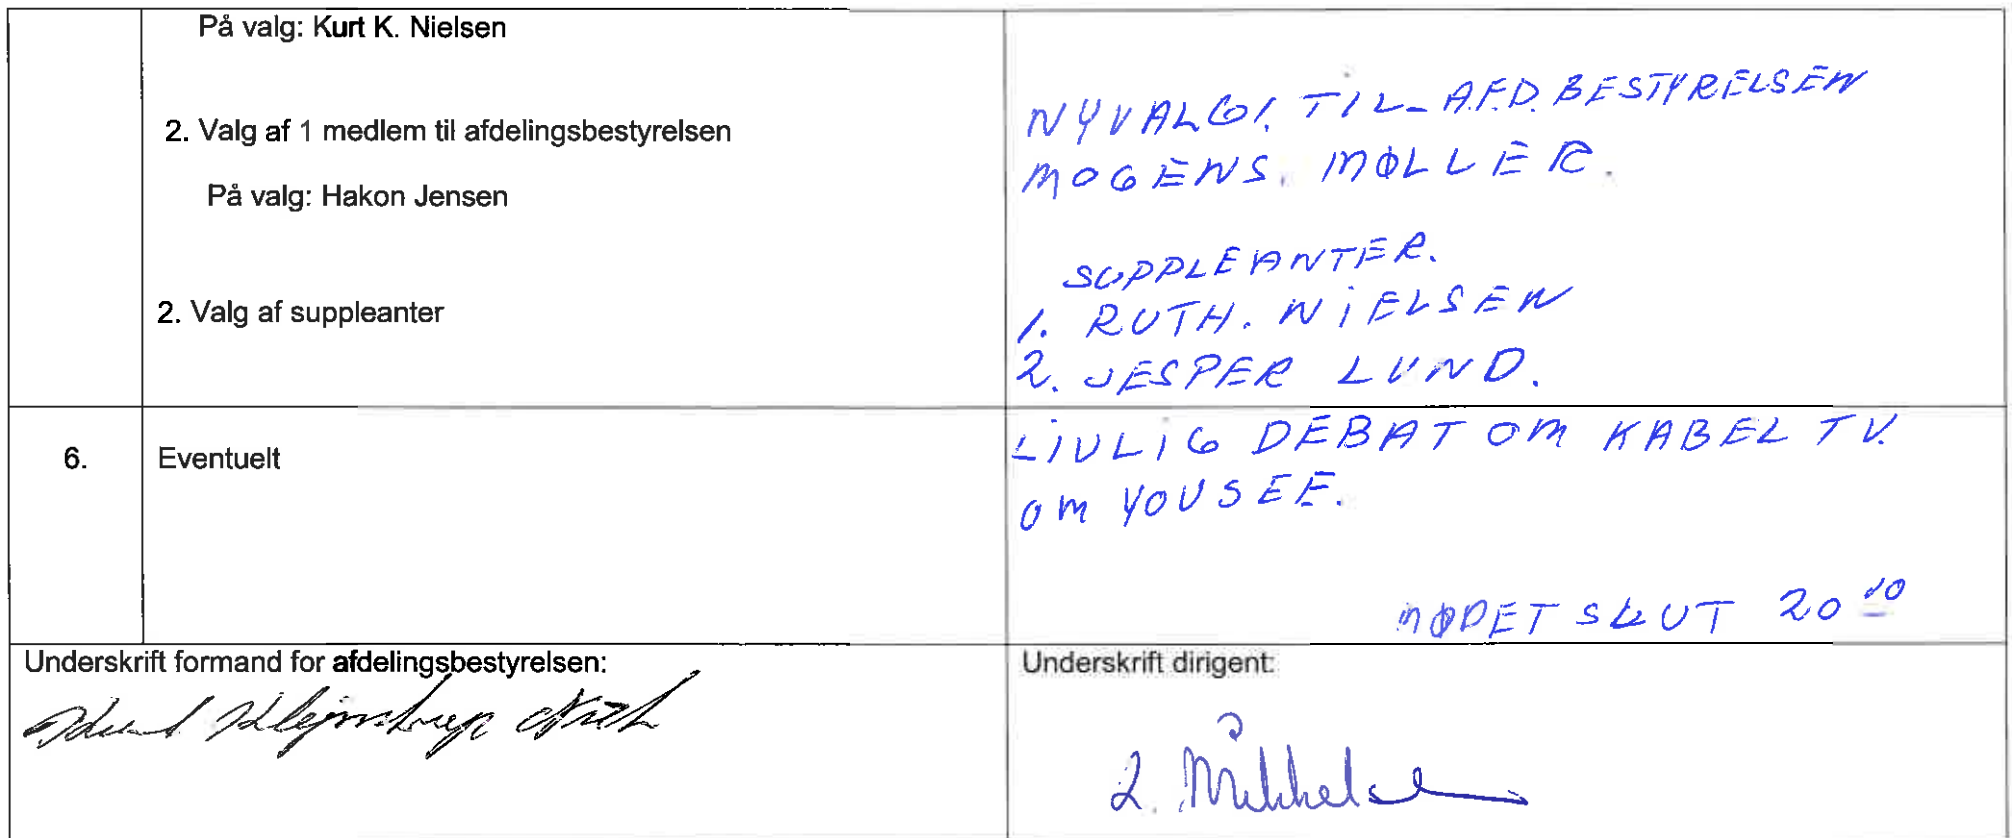 På valg: Kurt K. Nielsen
2. Valg af 1 medlem til afdelingsbestyrelsen
På valg: Hakon Jensen
2. Valg af suppleanter
NYVALGT. TIL- AFD. BESTYRELSEN
MOGENS. MØLLER.
SUPPLEANTER.
1. RUTH. NIELSEN
2. JESPER LUND.
6.
Eventuelt
LIVLIG DEBAT OM KABEL TV.
OM YOUSEE.
MØDET SLUT 20
Underskrift formand for afdelingsbestyrelsen:
Underskrift dirigent: